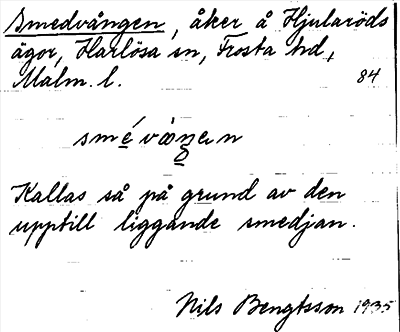 Smedvången, åker å Hjularöds
ägor, Harlösa sn, Frosta hd,
Malm. l. 84
Kallas så på grund av den
upptill liggande smedjan.
Nils Bengtsson 1935